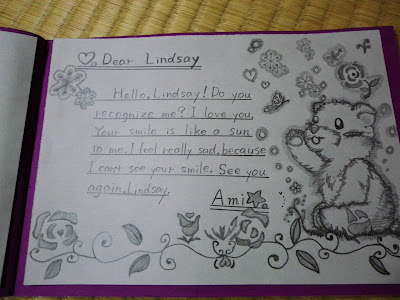 Dear Lindsay
Hello, Lindsay! Do you
recognize me? I love you.
Your smile is like a sun
to me. I feel really sad, because
I can't see your smile. See you
again, Lindsay.
Ami